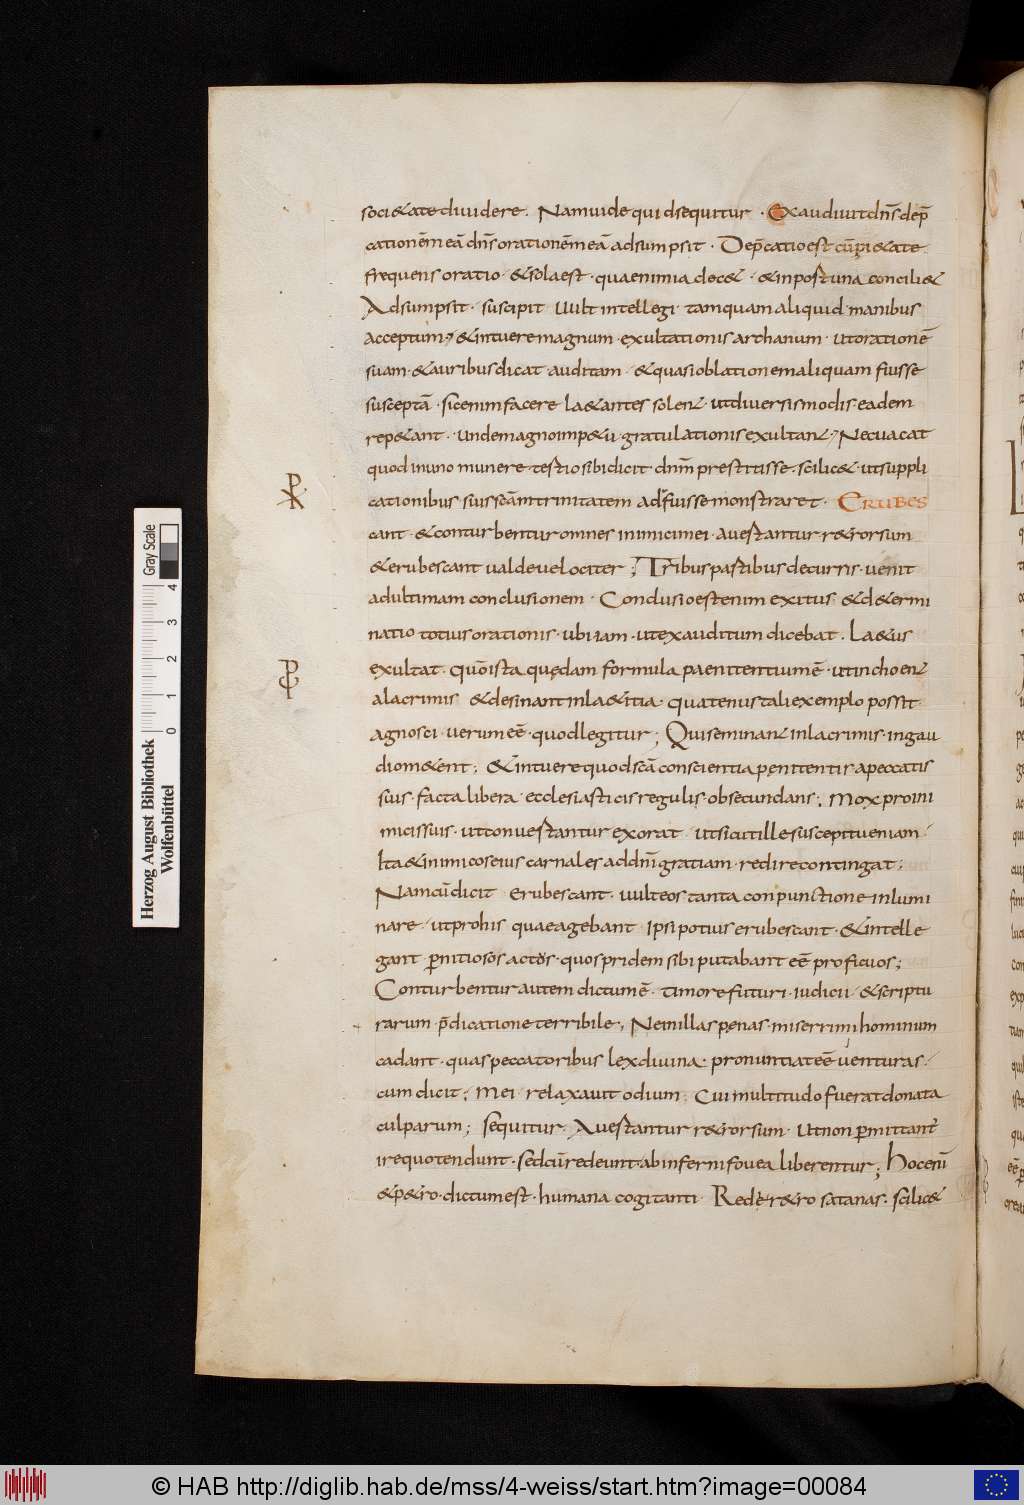 soci&ate diuidere. Nam uide quid sequitur · Exaudiuit dn̄s dep̄
cationēm eā dn̄s orationēmeā adsumpsit · Dep̄catio est cūpi&ate
frequens oratio · &sola est · quae nimia dec& · & inportuna concili&
Adsumpsit · suscipit uult intellegi · tamquam aliquid manibus
acceptum, & intuere magnum · exultationis archanum · ut orationē
suam · & auribus dicat auditam · & quasi oblationem aliquam fuisse
susceptā · sic enim facere la&antes solen& · ut diuersis modis eadem
rep&ant · unde magno imp&u · gratulationis exultan& , Nec uacat
quod in uno munere tertio sibi dicit dnm̄ prestitisse · scilic& ut suppli
cationibus suis scām trinitatem ad fuisse monstraret · ERUBES
cant · & conturbentur omnes inimici mei · auertantur r&rorsum
& erubescant ualde uelociter ; Tribus partibus decursis · uenit
ad ultimam conclusionem · Conclusio est enim exitus & d&ermi
natio totius orationis · ubi iam · ut exauditum dicebat · La&us
exultat · quō ista quędam formula paenitentium ē · ut inchoen&
a lacrimis & desinant in la&itia · quatenus tali exemplo possit
agnosci · uerum eē · quod legitur ; Qui seminan& in lacrimis · in gau
dio m&ent ; & intuere quod scā conscientia pęnitentis a peccatis
suis facta libera · ecclesiasticis regulis · obsecundans ; mox pro ini
micis suis · ut conuertantur exorat · ut sicut ille suscepit ueniam ·
Ita & inimicos eius carnales ad dnī gratiam · redire contingat ;
Nam cū dicit erubescant · uult eos tanta conpunctione inlumi
nare · ut pro his quae agebant ipsi potius erubescant · & intelle
gant pernitiosos actos · quos pridem sibi putabant eē proficuos ;
Conturbentur autem dictum ē · timore futuri · iudicii · & scriptu
rarum · p̄dicatione terribile , Ne in illas pęnas · miserrimi hominum
cadant · quas peccatoribus lex diuina · pronuntiat eē uenturas ·
cum dicit ; mei relaxauit odium · Cui multitudo fuerat donata
culparum ; sequitur · Auertantur r&rorsum · ut non permittant̄
ire quo tendunt · sed cū redeunt ab inferni fouea liberentur ; Hoc enī
& p&ro · dictum est · humana cogitanti Rede r&ro satanas · scilic&
Herzog August Bibliothek
Wolfenbüttel
0 1 2 3 4
Gray Scale
© HAB http://diglib.hab.de/mss/4-weiss/start.htm?image=00084